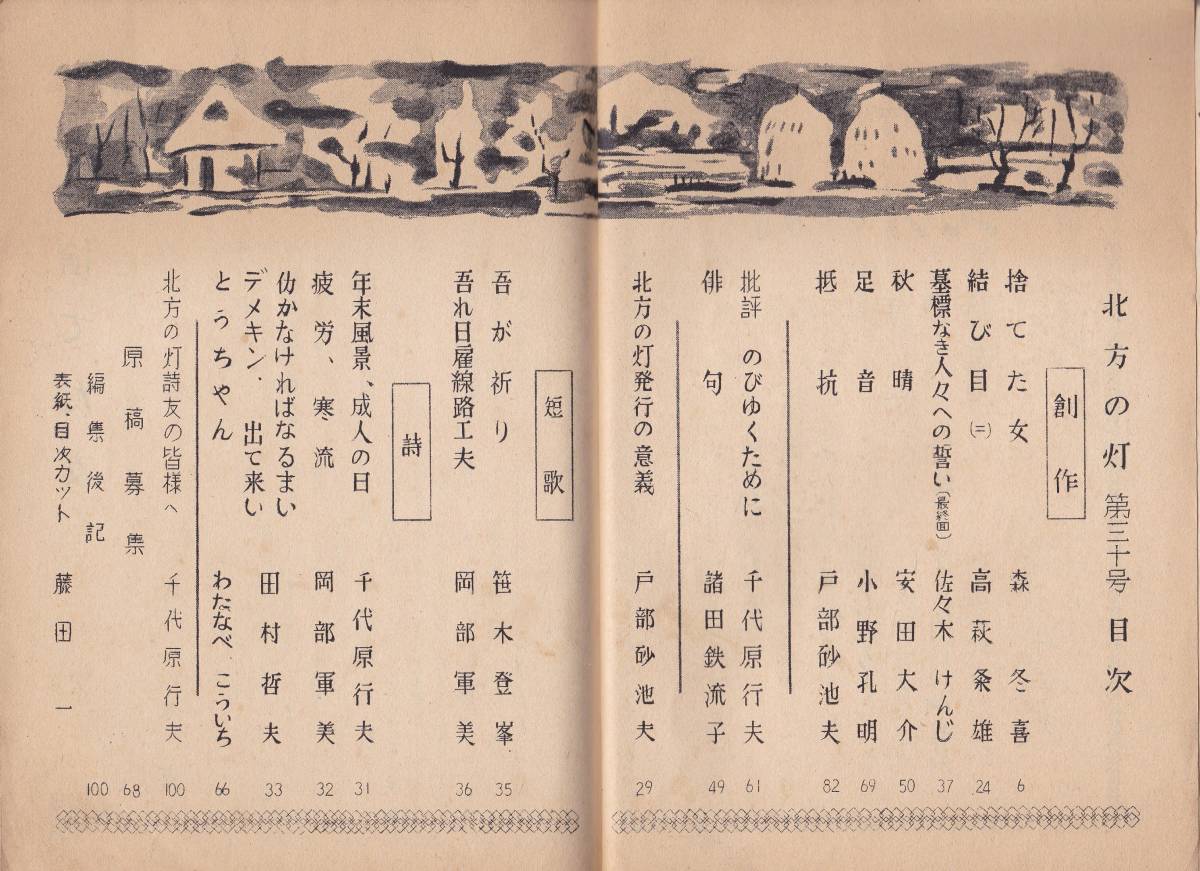 北方の灯 第三十号 目次
創作
捨てた女 森冬喜 6
結び目(二) 高萩粂雄 24
墓標なき人々への誓い(最終回) 佐々木けんじ 37
秋晴 安田大介 50
足音 小野孔明 69
抵抗 戸部砂池夫 82
批評 のびゆくために 千代原行夫 61
俳句 諸田鉄流子 49
北方の灯発行の意義 戸部砂池夫 29
短歌
吾が祈り 笹木登峯 35
吾れ日雇線路工夫 岡部軍美 36
詩
年末風景、成人の日 千代原行夫 31
疲労、寒流 岡部軍美 32
仂かなければなるまい
デメキン・出て来い 田村哲夫 33
とうちゃん わたなべ こういち 66
北方の灯詩友の皆様へ 千代原行夫 100
原稿募集 68
編集後記 100
表紙、目次カット 藤田一